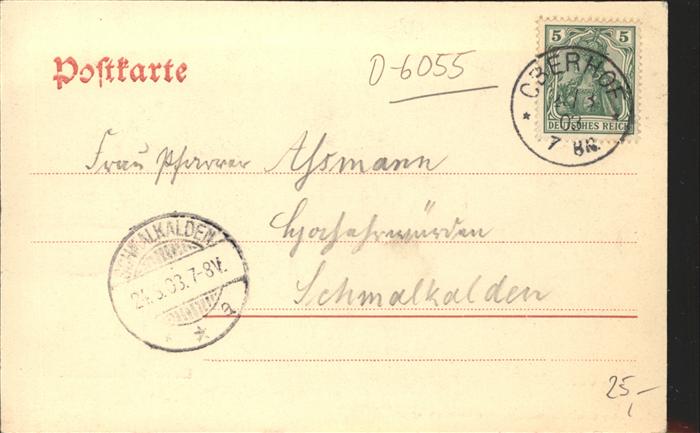 Postkarte
D-6055
5 5
DEUTSCHES REICH
OBERHOF
03
7
Frau Pfarrer Assmann
Schmalkalden
SCHMALKALDEN
03.7-8V.
a
25,-